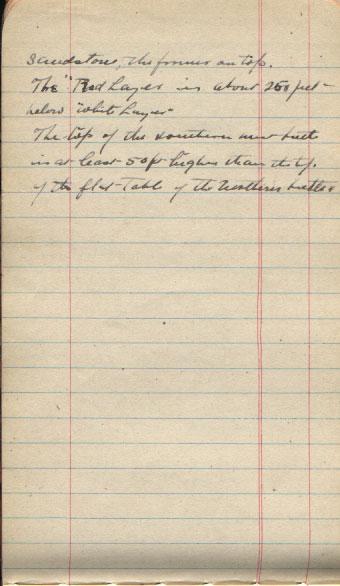 Sandstone, the former on top.
The "Red Layer is about 250 feet
below "White Layer"
The top of the southern most butte
is at least 50 ft higher than the top
of the flat Table of the Northern buttes